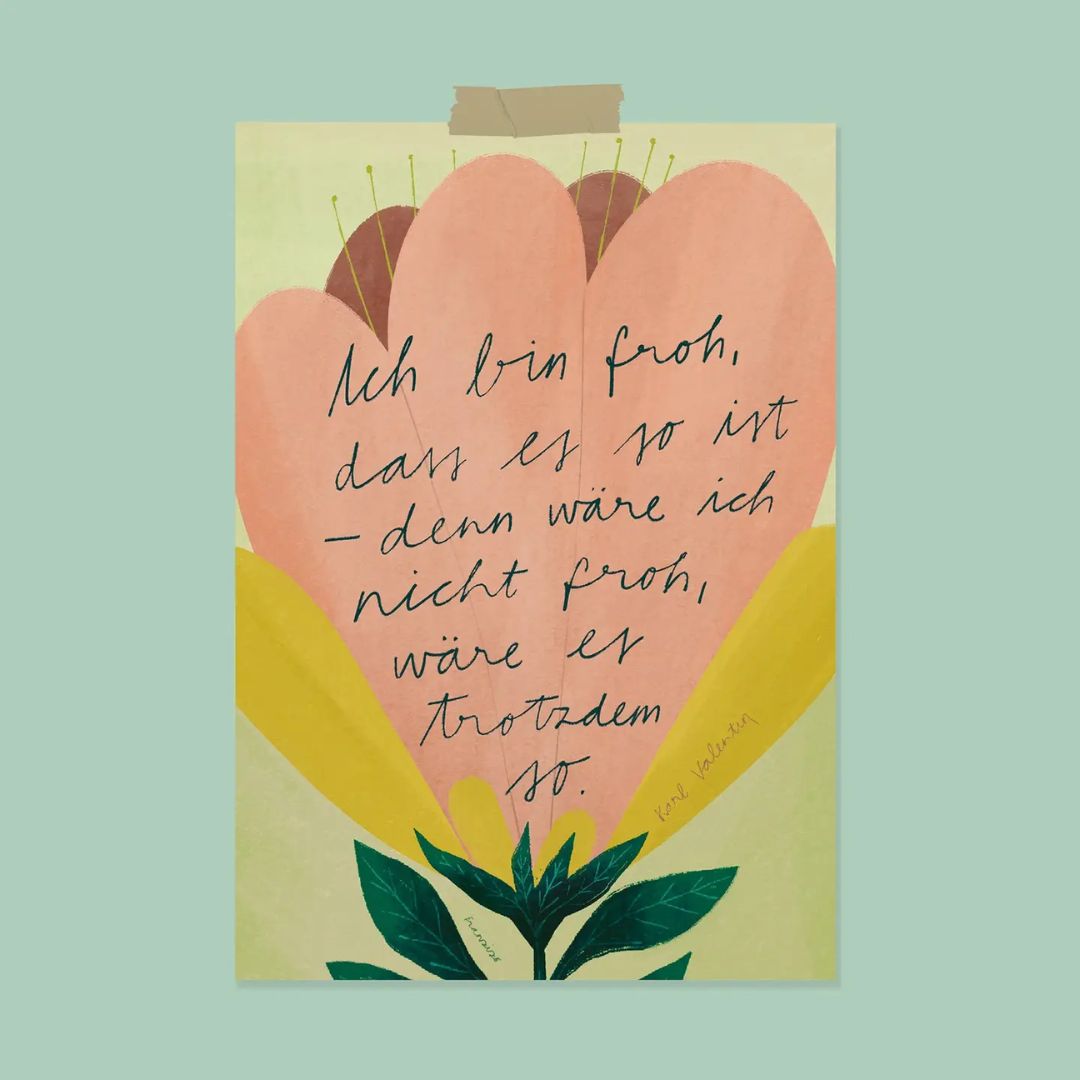 Ich bin froh,
dass es so ist
– denn wäre ich
nicht froh,
wäre es
trotzdem
so.
Karl Valentin